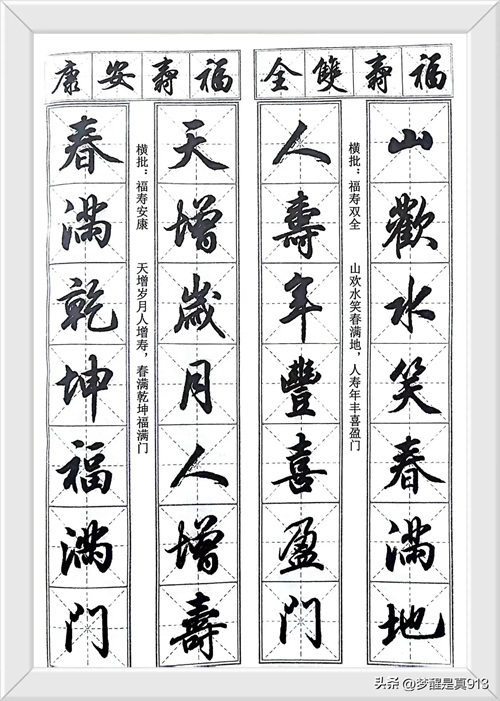 福壽雙全
山歡水笑春滿地
横批：福寿双全 山欢水笑春满地，人寿年丰喜盈门
人壽年豐喜盈门
福壽安康
天增歲月人增壽
横批：福寿安康 天增岁月人增寿，春满乾坤福满门
春滿乾坤福滿门
头条 @梦醒是真913